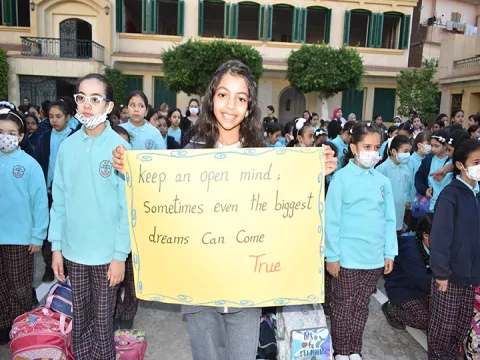 Keep an open mind;
Sometimes even the biggest
dreams Can Come
True